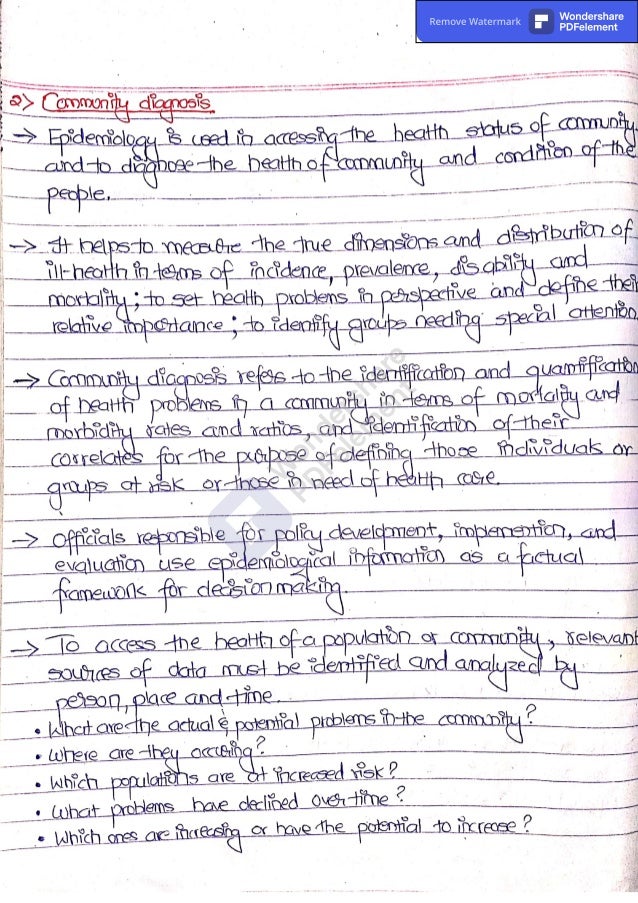 Remove Watermark
Wondershare
PDFelement
2> Community diagnosis
→ Epidemiology is used in accessing the health status of community
and to diagnose the health of community and condition of the
people.
→ It helps to measure the true dimensions and distribution of
ill-health in terms of incidence, prevalence, disability and
mortality; to set health problems in perspective and define their
relative importance; to identify groups needing special attention
→ Community diagnosis refers to the identification and quantification
of health problems in a community in terms of mortality and
morbidity rates and ratios, and identification of their
correlates for the purpose of defining those individuals or
groups at risk or those in need of health care.
→ Officials responsible for policy development, implemention, and
evaluation use epidemiological information as a factual
framework for decision making.
→ To access the health of a population or community, relevant
sources of data must be identified and analyzed by
person, place and time.
• What are the actual & potential problems in the community?
• Where are they occuring?
• Which populations are at increased risk?
• What problems have declined over time?
• Which ones are increasing or have the potential to increase?
Wondershare
PDFelement